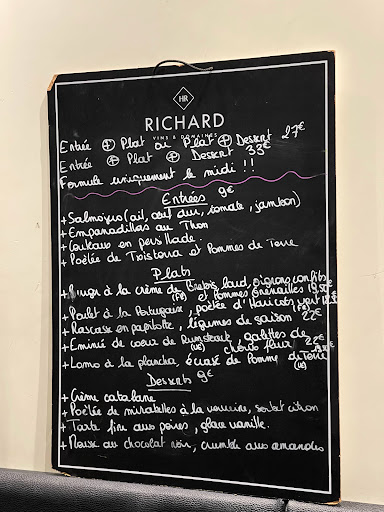 HR
RICHARD
VINS & DOMAINES
Entrée + Plat ou Plat + Dessert 27€
Entrée + Plat + Dessert 33€
Formule uniquement le midi !!
Entrées 9€
+ Salmorejo (ail, œuf dur, tomate, jambon)
+ Empanadillas au Thon
+ Couteaux en persillade.
+ Poêlée de Txistorra et Pommes de Terre
Plats
à la crème de Brebis, lard, oignons confits
(FR) et Pommes Grenailles 19,50€
+ Poulet à la Portugaise, poêlée d'Haricots vert
+ Rascasse en papillote, légumes de saison 22€
+ Eminé de coeur de Rumsteack, galettes de
(UE) choux fleur 22€
+ Lomo à la plancha, écrasé de Pomme de Terre
(UE)
Desserts 9€
+ Crème catalane
+ Poêlée de mirabelles à la verveine, sorbet citron
+ Tarte fine aux poires, glace vanille.
+ Mousse au chocolat noir, crumble aux amandes